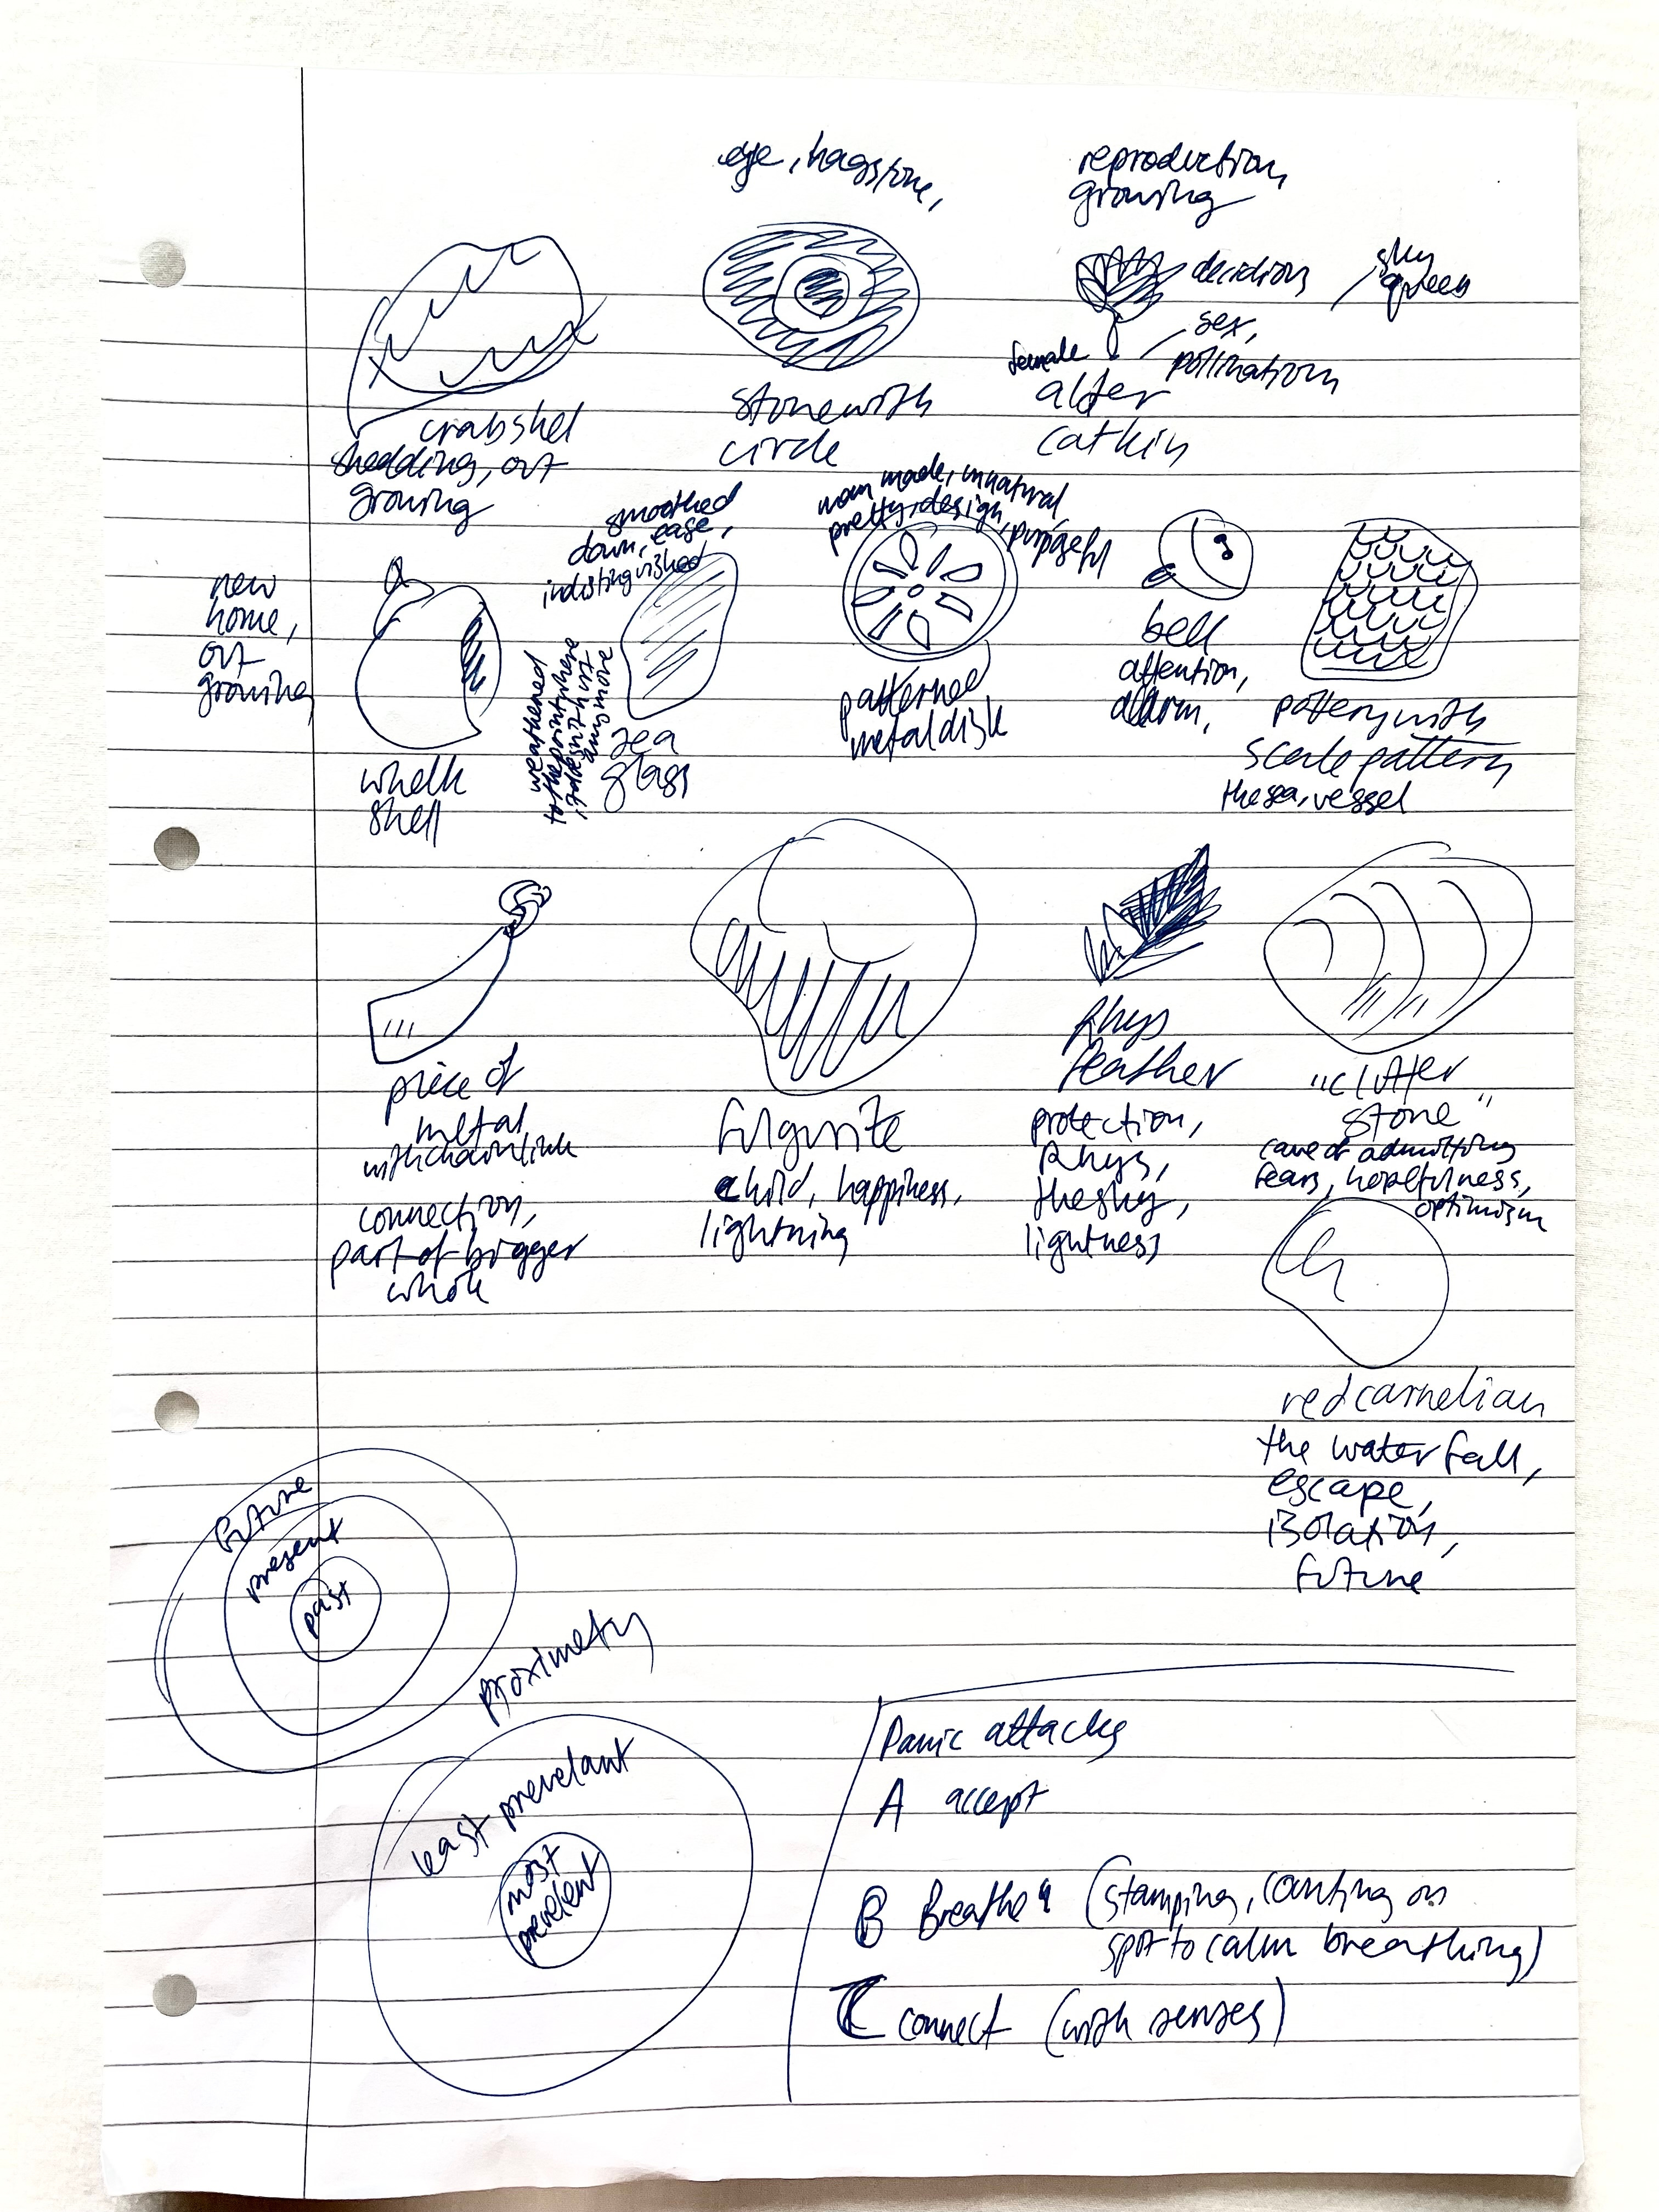 eye, hagstone,
reproduction,
growing
decidious
sex,
pollination
female
alder
catkin
crabshel
shedding, out
growing
stone with
circle
new
home,
out
growing
whelk
shell
smoothed
down, ease,
indistinguished
weathered
to the point where
it doesn't hurt
anymore
sea
glass
man made, unnatural
pretty, design, purposeful
patterned
metal disk
bell
attention,
alarm,
pottery with
scale pattern
the sea, vessel
piece of
metal
with chainlink
connection,
part of bigger
whole
fulgurite
child, happiness,
lightning
Rhys
feather
protection,
Rhys,
the sky,
lightness
"clutter
stone"
admitting
fears, hopefulness,
optimism
red carnelian
the waterfall,
escape,
isolation,
future
future
present
past
proximety
least prevelant
most
prevelent
Panic attacks
A accept
B Breathe (stamping, counting on
spot to calm breathing)
C connect (with senses)